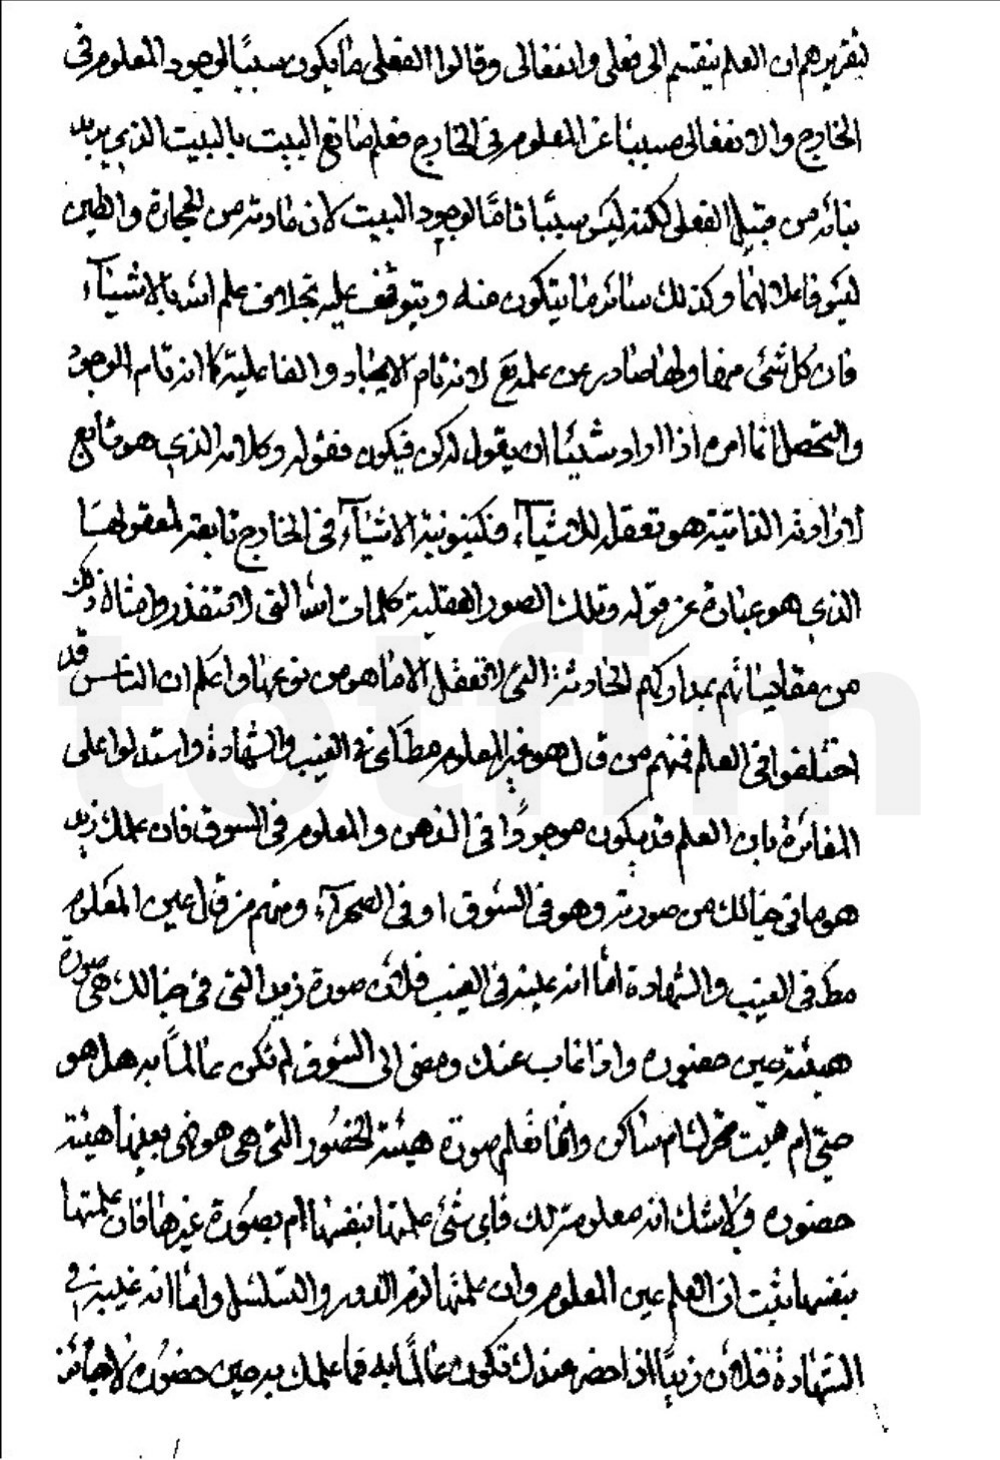 لتقريرهم ان العلم ينقسم الى فعلى وانفعالى وقالوا الفعلى ما يكون سببًا لوجود المعلوم فى
الخارج والانفعالى مسببا عن المعلوم فى الخارج فعلم صانع البيت بالبيت الذي يريد
بنائه من قبيل الفعلى لكنه ليس سببًا تامًّا لوجود البيت لان مادته من الحجارة والطين
ليس فاعلا لهما وكذلك سائر ما يتكون منه ويتوقف عليه بخلاف علم الله بالاشيآء
فان كل شئ منها ولها صادر عن علمه تع لانه تام الايجاد والفاعلية كما انه تام الوجود
والتحصل انما امره اذا اراد شيئا ان يقول له كن فيكون فقوله وكلامه الذي هو تابع
لارادته الذاتية هو تعقله للاشيآء فكينونية الاشيآء فى الخارج تابعة لمعقوليتها
الذي هو عبارة عن قوله وتلك الصور العقلية كلمات الله التى لا تنفد وامثال ذلك
من مقايساتهم بمداركهم الحادثة التى لا تعقل الا ما هو من نوعها واعلم ان الناس قد
اختلفوا فى العلم فمنهم من قال هو غير المعلوم مطلقا فى الغيب والشهادة واستدلوا على
المغائرة بان العلم قد يكون موجودًا فى الذهن والمعلوم فى السوق فان علمك زيد
هو ما فى خيالك من صورته وهو فى السوق او فى الصحرآء ومنهم من قال عين المعلوم
مط فى الغيب والشهادة امّا انه عينه فى الغيب فلان صورة زيد التى فى خيالك هى صورة
هيئته حين حضوره واذا غاب عنك ومضى الى السوق لم تكن عالمًا به هل هو
حىّ ام ميّت متحرك ام ساكن وانما تعلم صورة هيئة الحضور التى هى هو فى بعينها هيئة
حضوره ولا شك انه معلومة لك فباى شئ علمتها بنفسها ام بصورة غيرها فان علمتها
بنفسها يثبت ان العلم عين المعلوم وان علمتها لزم الدور والتسلسل وامّا انه عينه فى
الشهادة فلان زيدًا اذا حضر عندك تكون عالمًا به فما علمك به حين حضوره لا جائز